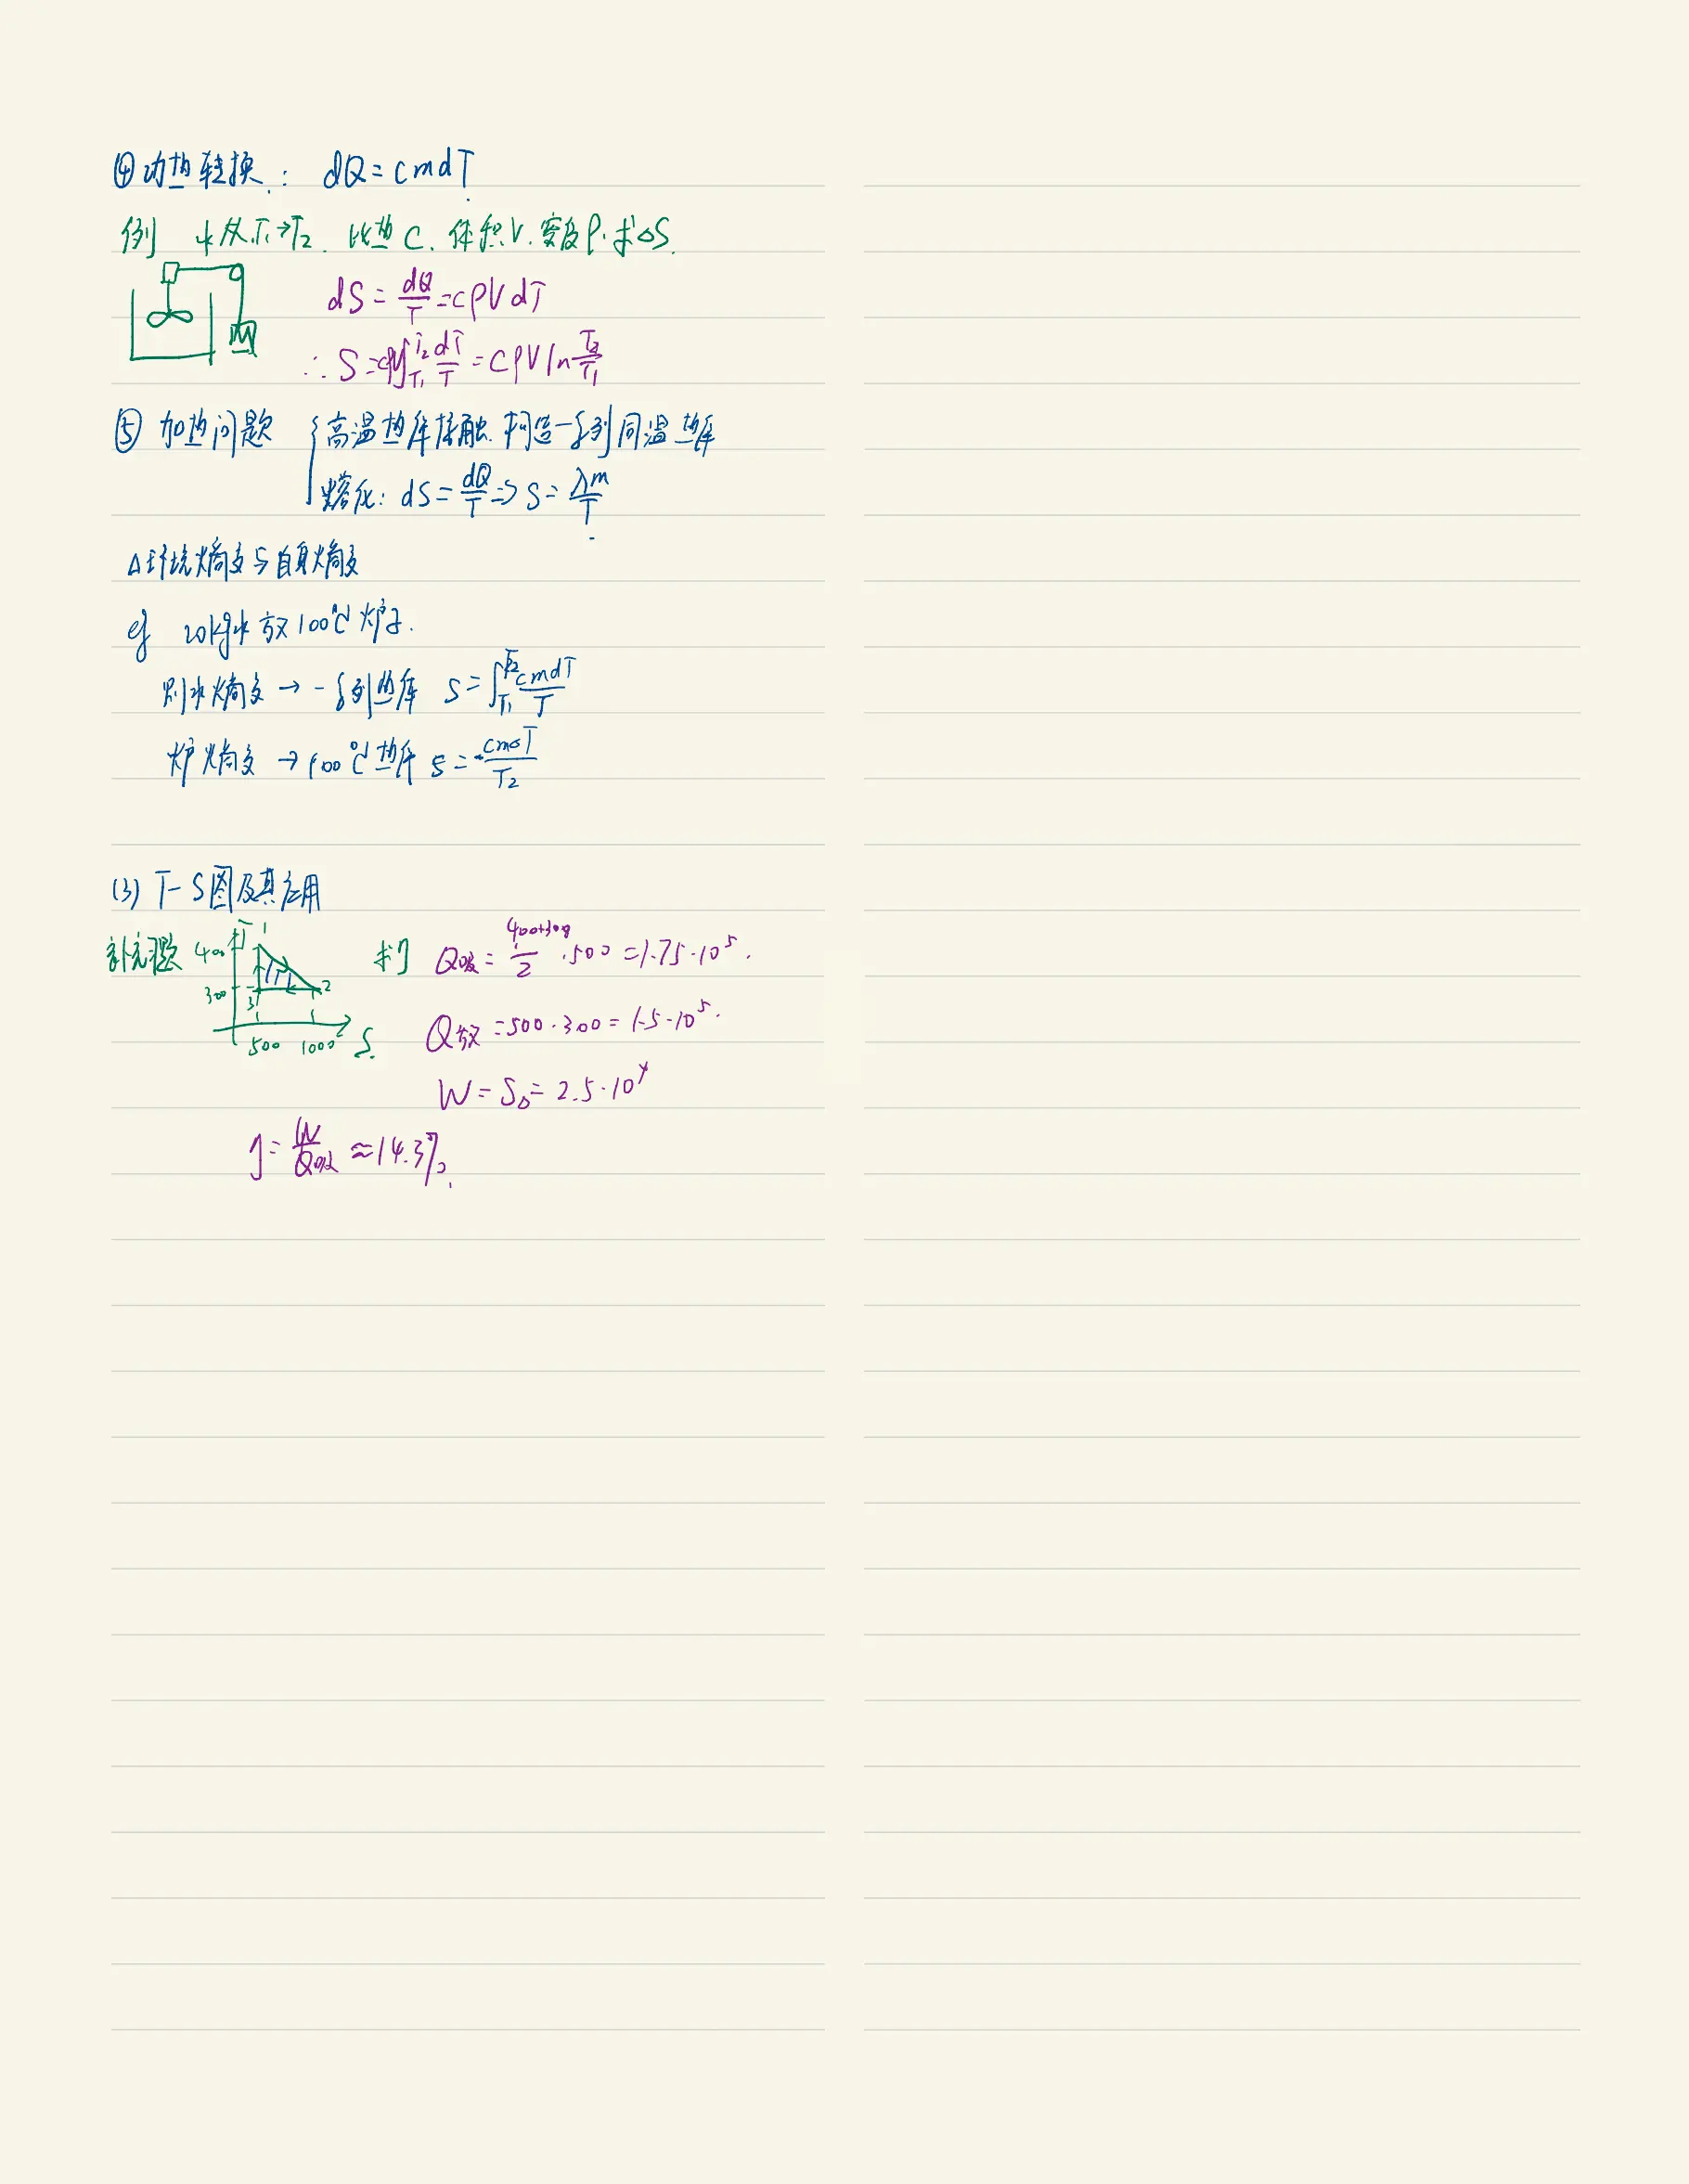 ④功热转换: dQ=cmdT
例 水从T₁→T₂. 比热C. 体积V. 密度ρ. 求ΔS.
M
dS = dQ/T = cρVdT
∴ S = cρV∫_{T₁}^{T₂} dT/T = cρV ln T₂/T₁
⑤ 加热问题 { 高温热库接触. 构造一系列同温热库
熔化: dS = dQ/T ⇒ S = λm/T
△环境熵变与自身熵变
eg 20kg水放100℃炉子.
则水熵变 → 一系列热库 S = ∫_{T₁}^{T₂} cmdT/T
炉熵变 → 100℃热库 S = -cmΔT/T₂
(3) T-S图及其应用
补充题 T 400 300 1 2 3 500 1000 S
求η Q吸 = (400+300)/2 · 500 = 1.75·10⁵.
Q放 = 500·300 = 1.5·10⁵.
W = S△ = 2.5·10⁴
η = W/Q吸 ≈ 14.3%.